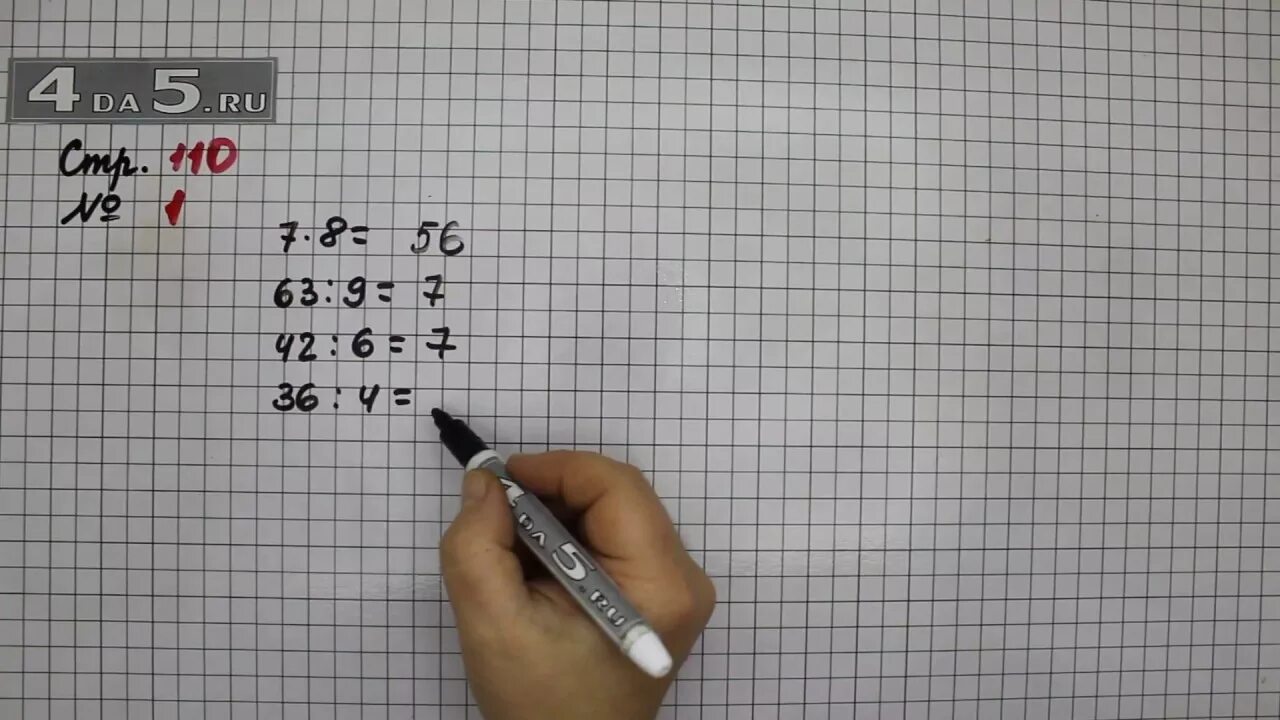 4DA5.RU
Стр. 110
№ 1
7·8= 56
63:9= 7
42:6=7
36:4=
4DA5.RU